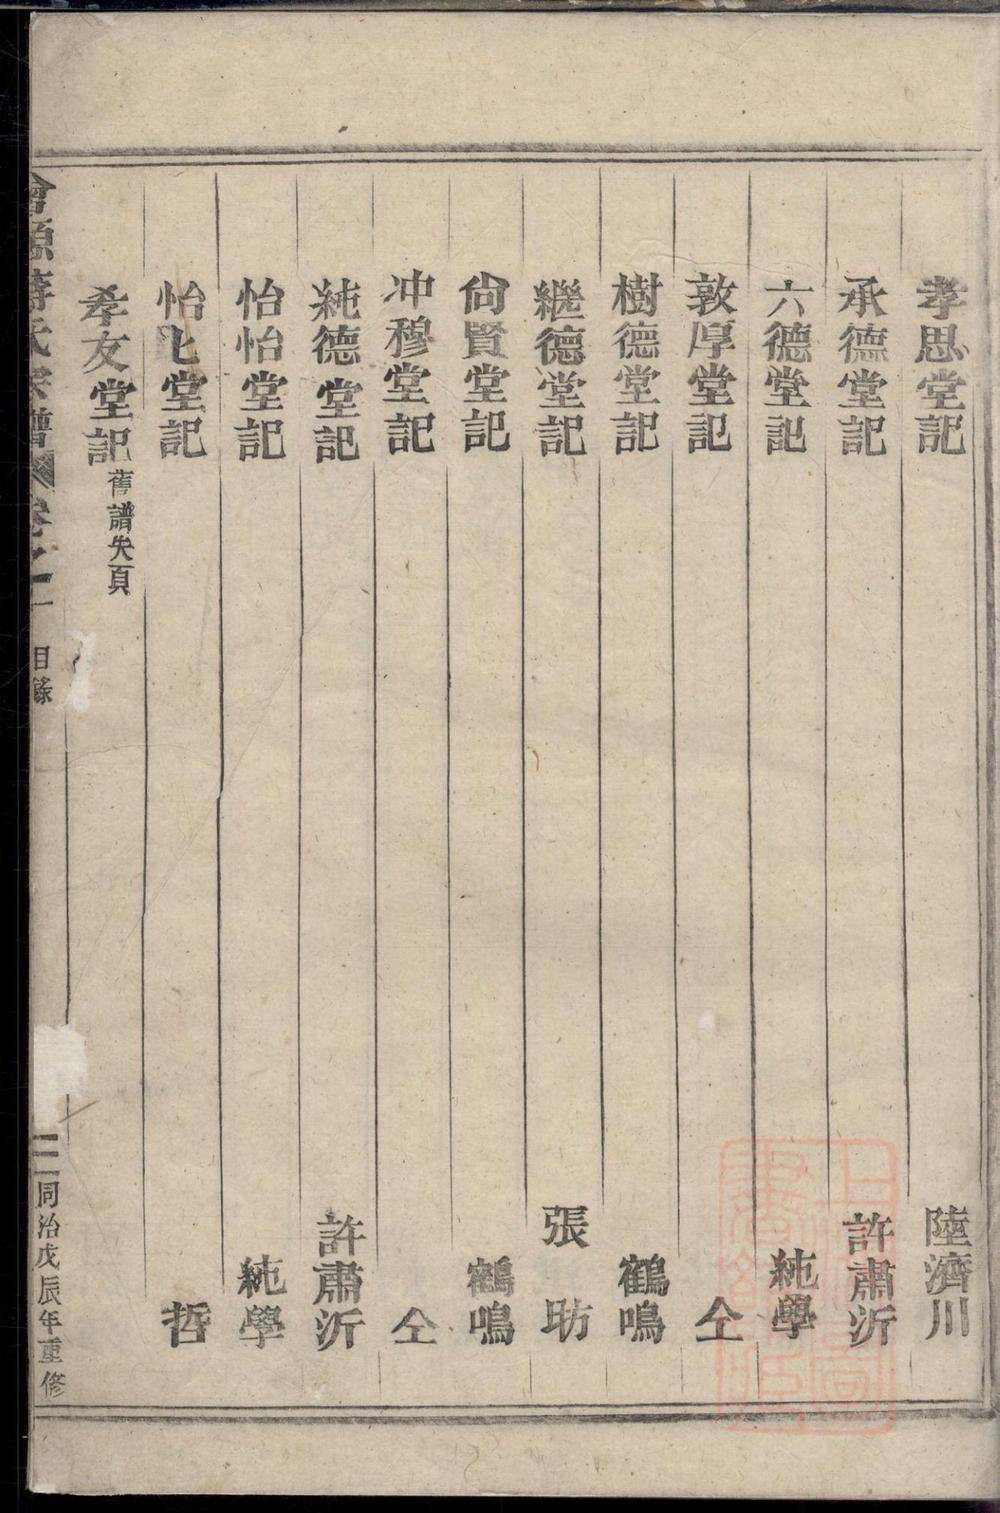 孝思堂記 陸濟川
承德堂記 許肅沂
六德堂記 純學
敦厚堂記 仝
樹德堂記 鶴鳴
繼德堂記 張昉
尙賢堂記 鶴鳴
冲穆堂記 仝
純德堂記 許肅沂
怡怡堂記 純學
怡
堂記 哲
孝友堂記 舊譜失頁
氏宗譜 卷之
目錄
同治戊辰年重修